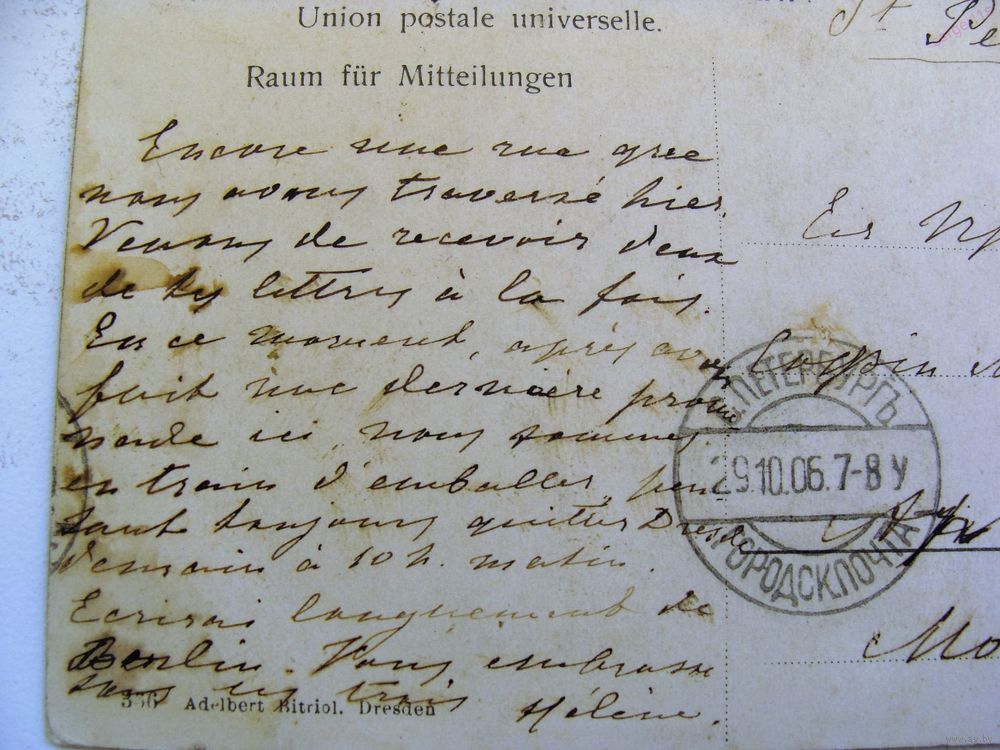 Union postale universelle.
St Pe
Raum für Mitteilungen
Encore une rue que
nous avons traversé hier.
Venons de recevoir deux
de tes lettres à la fois.
En ce moment, après avoir
fait une dernière prome
nade ici, nous sommes
en train d'emballer, pen
sant toujours quitter Dresde
demain à 10 h. matin.
Ecrirai longuement de
Berlin. Vous embrasse
tous les trois
Hélène.
336 Adelbert Bitriol. Dresden
С.ПЕТЕРБУРГЪ
29.10.06.7-8 У
ГОРОДСК.ПОЧТА
Mo
www.ay.by